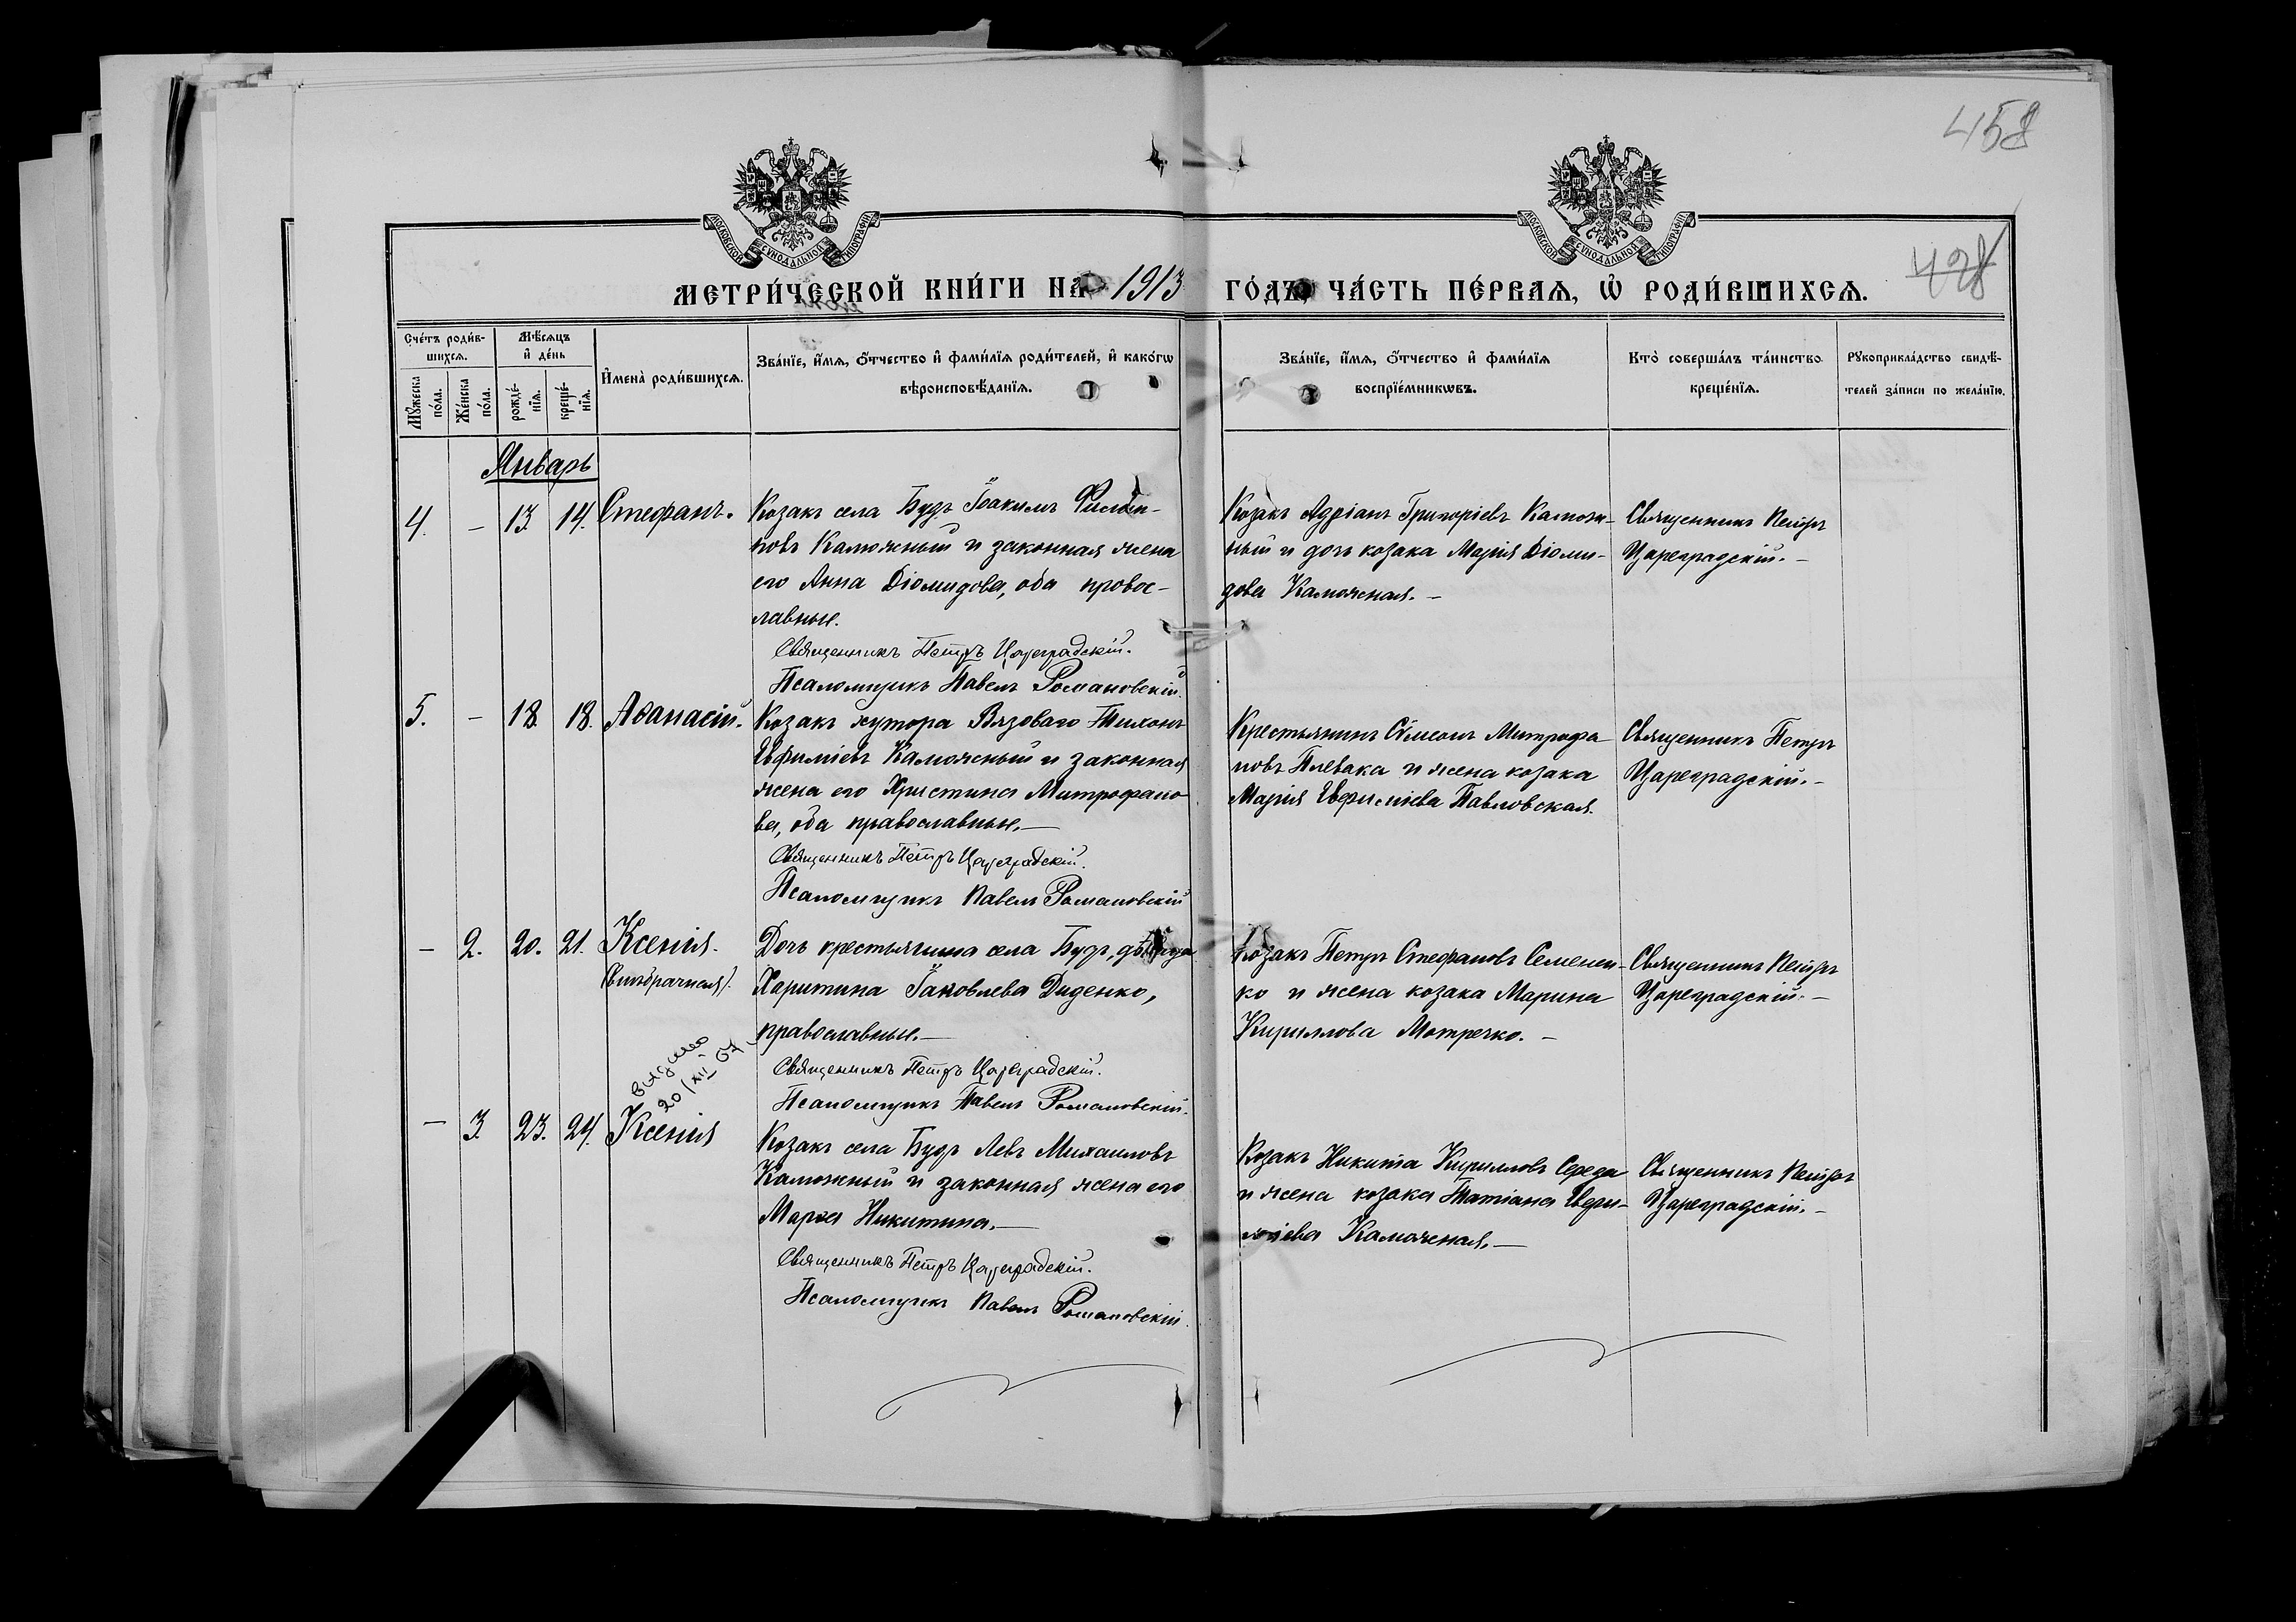 458
428
МОСКОВСКОЙ СУНОДАЛЬНОЙ ТИПОГРАФІИ
МОСКОВСКОЙ СУНОДАЛЬНОЙ ТИПОГРАФІИ
МЕТРИ́ЧЕСКОЙ КНИ́ГИ НА 1913 ГО́ДЪ, ЧА́СТЬ ПЕ́РВАѦ, Ѡ҆ РОДИ́ВШИХСѦ.
Сче́тъ роди́в-
шихсѧ.
Мꙋ́жеска по́ла.
Же́нска по́ла.
Мѣ́сѧцъ и҆ де́нь
рожде́-нїѧ.
креще́-нїѧ.
И҆мена̀ роди́вшихсѧ.
Зва́нїе, и҆́мѧ, ѻ҆́тчество и҆ фами́лїѧ роди́телей, и҆ како́гѡ
вѣроисповѣ́данїѧ.
Зва́нїе, и҆́мѧ, ѻ҆́тчество и҆ фами́лїѧ
воспрїе́мникѡвъ.
Кто̀ соверша́лъ та́инство
креще́нїѧ.
Рꙋкоприкла́дство свидѣ́-
телей за́писи по жела́нїю.
Январь
4. – 13. 14. Стефанъ.
Козакъ села Будъ Іоакимъ Филип-
повъ Калюжный и законная жена
его Анна Діомидова, оба правос-
лавные.
Священникъ Петръ Цареградскій.
Псаломщикъ Павелъ Романовскій.
Козакъ Адріанъ Григоріевъ Калюж-
ный и дочь козака Марія Діоми-
дова Калюжная. –
Священникъ Петръ
Цареградскій. –
5. – 18. 18. Аѳанасій.
Козакъ хутора Вязоваго Тихонъ
Евфиміевъ Калюжный и законная
жена его Христина Митрофано-
ва, оба православные. –
Священникъ Петръ Цареградскій.
Псаломщикъ Павелъ Романовскій
Крестьянинъ Сѵмеонъ Митрофа-
новъ Плевака и жена козака
Марія Евфиміева Павловская.
Священникъ Петръ
Цареградскій. –
– 2. 20. 21. Ксенія.
(внѣбрачная).
Дочь крестьянина села Будъ, дѣвица
Харитина Іаковлева Диденко,
православные. –
Священникъ Петръ Цареградскій.
Псаломщикъ Павелъ Романовскій.
Козакъ Петръ Стефановъ Семенен-
ко и жена козака Марина
Кириллова Мотречко. –
Священникъ Петръ
Цареградскій. –
видано
20/XII 07
– 3. 23. 24. Ксенія
Козакъ села Будъ Левъ Михаиловъ
Калюжный и законная жена его
Марѳа Никитина. –
Священникъ Петръ Цареградскій.
Псаломщикъ Павелъ Романовскій.
Козакъ Никита Кирилловъ Середа
и жена козака Татіана Евфи-
міева Калюжная. –
Священникъ Петръ
Цареградскій. –